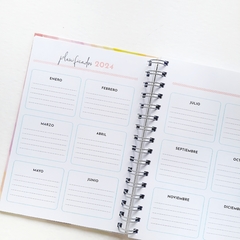 planificador 2024
ENERO
FEBRERO
MARZO
ABRIL
MAYO
JUNIO
JULIO
SEPTIEMBRE
OCTUBRE
NOVIEMBRE
DICIEMBRE